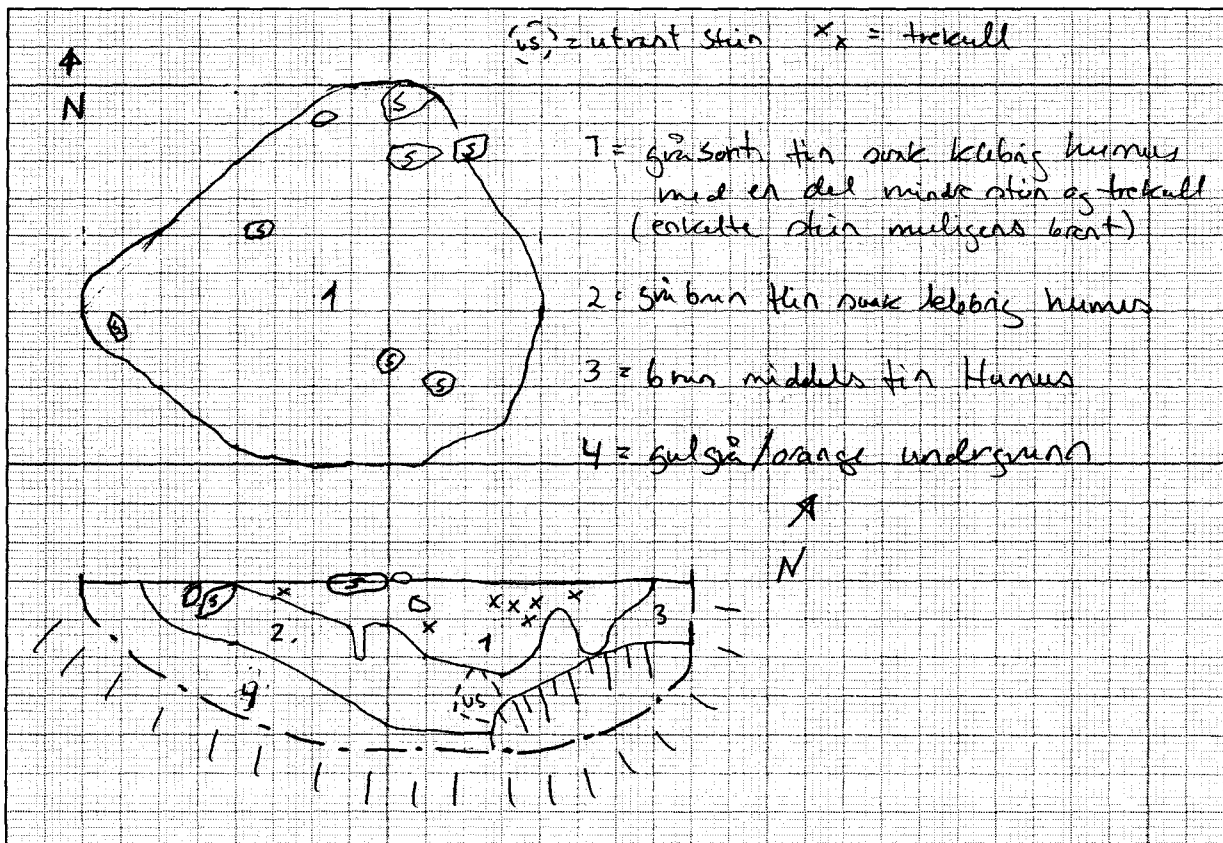 (us) = utrast stein x x = trekull
N
S
S
S
S
1
S
S
S
1 = gråsort fin svak klebrig humus
med en del mindre stein og trekull
(enkelte stein muligens brent)
2 = gråbrun fin svak klebrig humus
3 = brun middels fin Humus
4 = gulgrå/orange undergrunn
N
S
S
x
x
x x x
x
x
1
2.
3
4
us